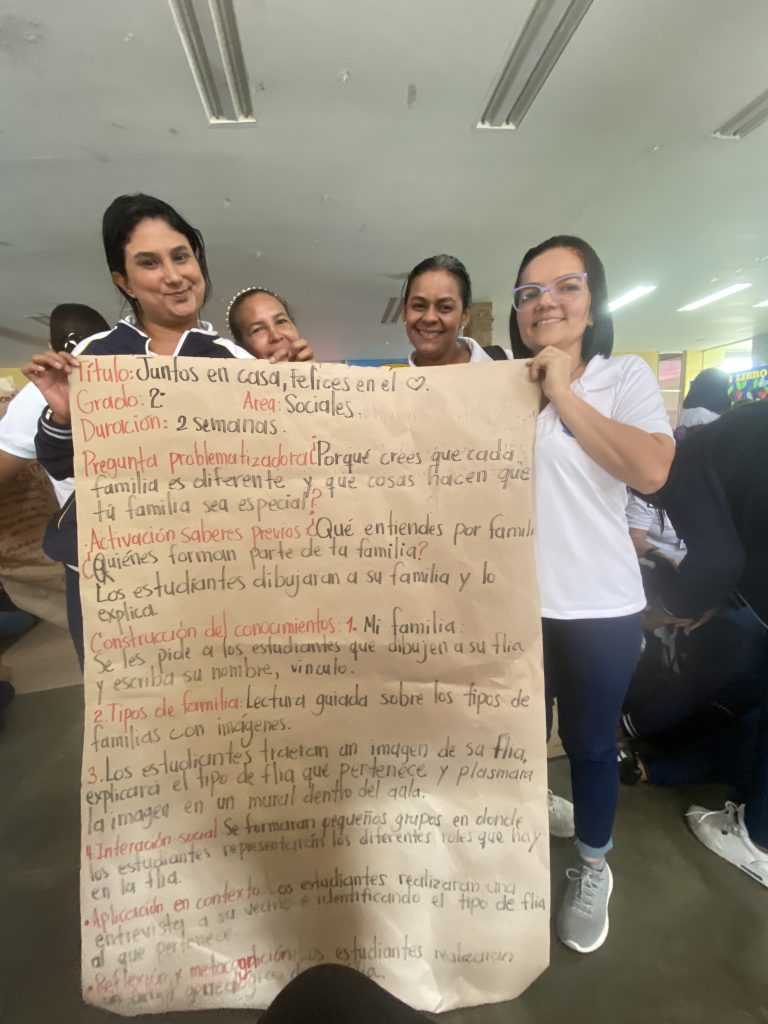 Título: Juntos en casa, felices en el ♡.
Grado: 2- Area: Sociales.
Duración: 2 semanas.
Pregunta problematizadora ¿Porqué crees que cada
familia es diferente y que cosas hacen que
tú familia sea especial?
.Activación saberes previos ¿Qué entiendes por famili
¿Quiénes forman parte de tu familia?
Los estudiantes dibujaran a su familia y lo
explica.
Construcción del conocimientos: 1- Mi familia:
Se les pide a los estudiantes que dibujen a su flia
y escriba su nombre, vinculo.
2. Tipos de familia: Lectura guiada sobre los tipos de
familias con imágenes.
3. Los estudiantes traeran un imagen de su flia,
explicará el tipo de flia que pertenece y plasmara
la imagen en un mural dentro del aula.
4 Interación social Se formaran pequeños grupos en donde
los estudiantes representarán los diferentes roles que hay
en la flia.
•Aplicación en contexto: Los estudiantes realizarán una
entrevista a su vecino e identificando el tipo de flia
al que pertenece.
•Reflexión y metacognición: Los estudiantes realizaran
un
I LIBRO